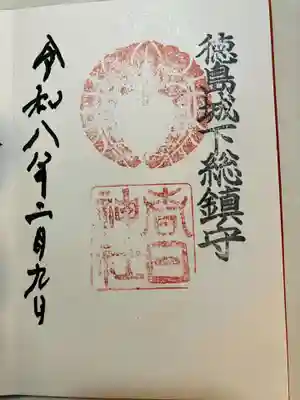 徳島城下総鎮守
春日
神社
令和八年二月九日